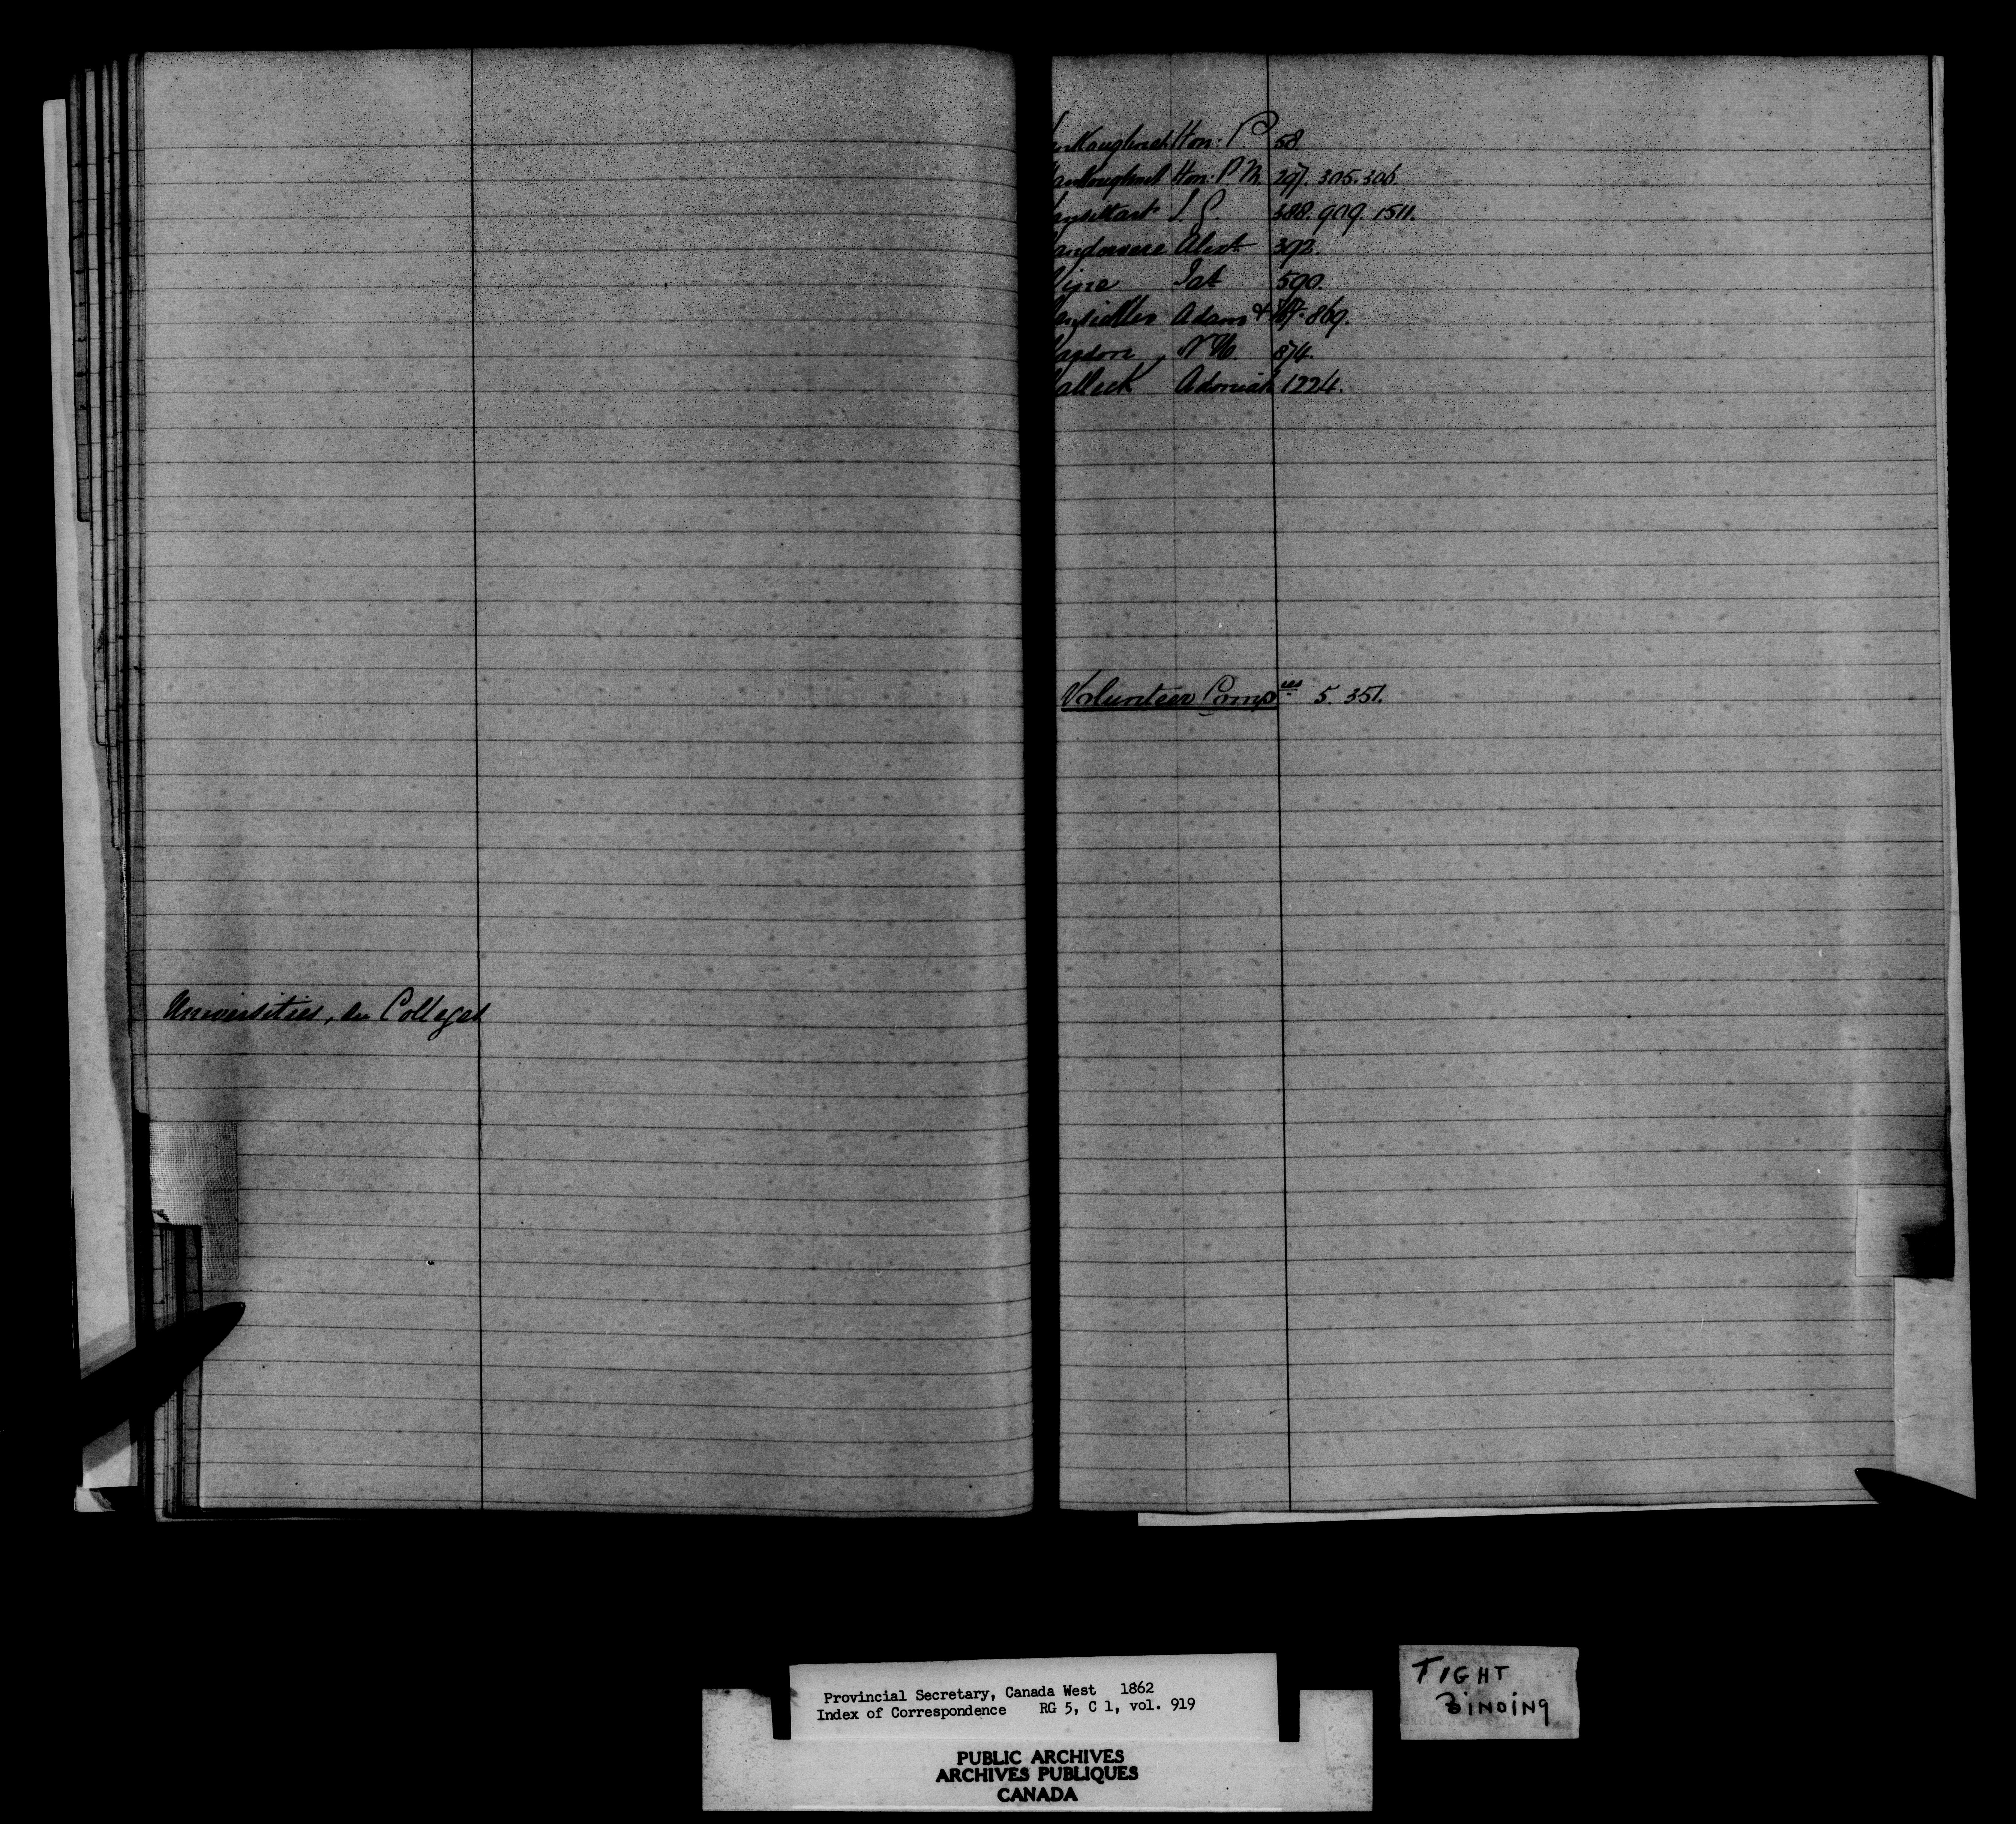 Universities, see Colleges
anKoughnet Hon: P. 58.
anKoughnet Hon: P M 297. 305. 306.
ansittart J. G. 388. 909. 1511.
andervere Alexr 392.
Vine Jas 590.
Adam & 869.
N H. 874.
alleck Adoniah 1224.
Volunteer Compies 5. 351.
Provincial Secretary, Canada West 1862
Index of Correspondence RG 5, C 1, vol. 919
PUBLIC ARCHIVES
ARCHIVES PUBLIQUES
CANADA
TIGHT
BINDING